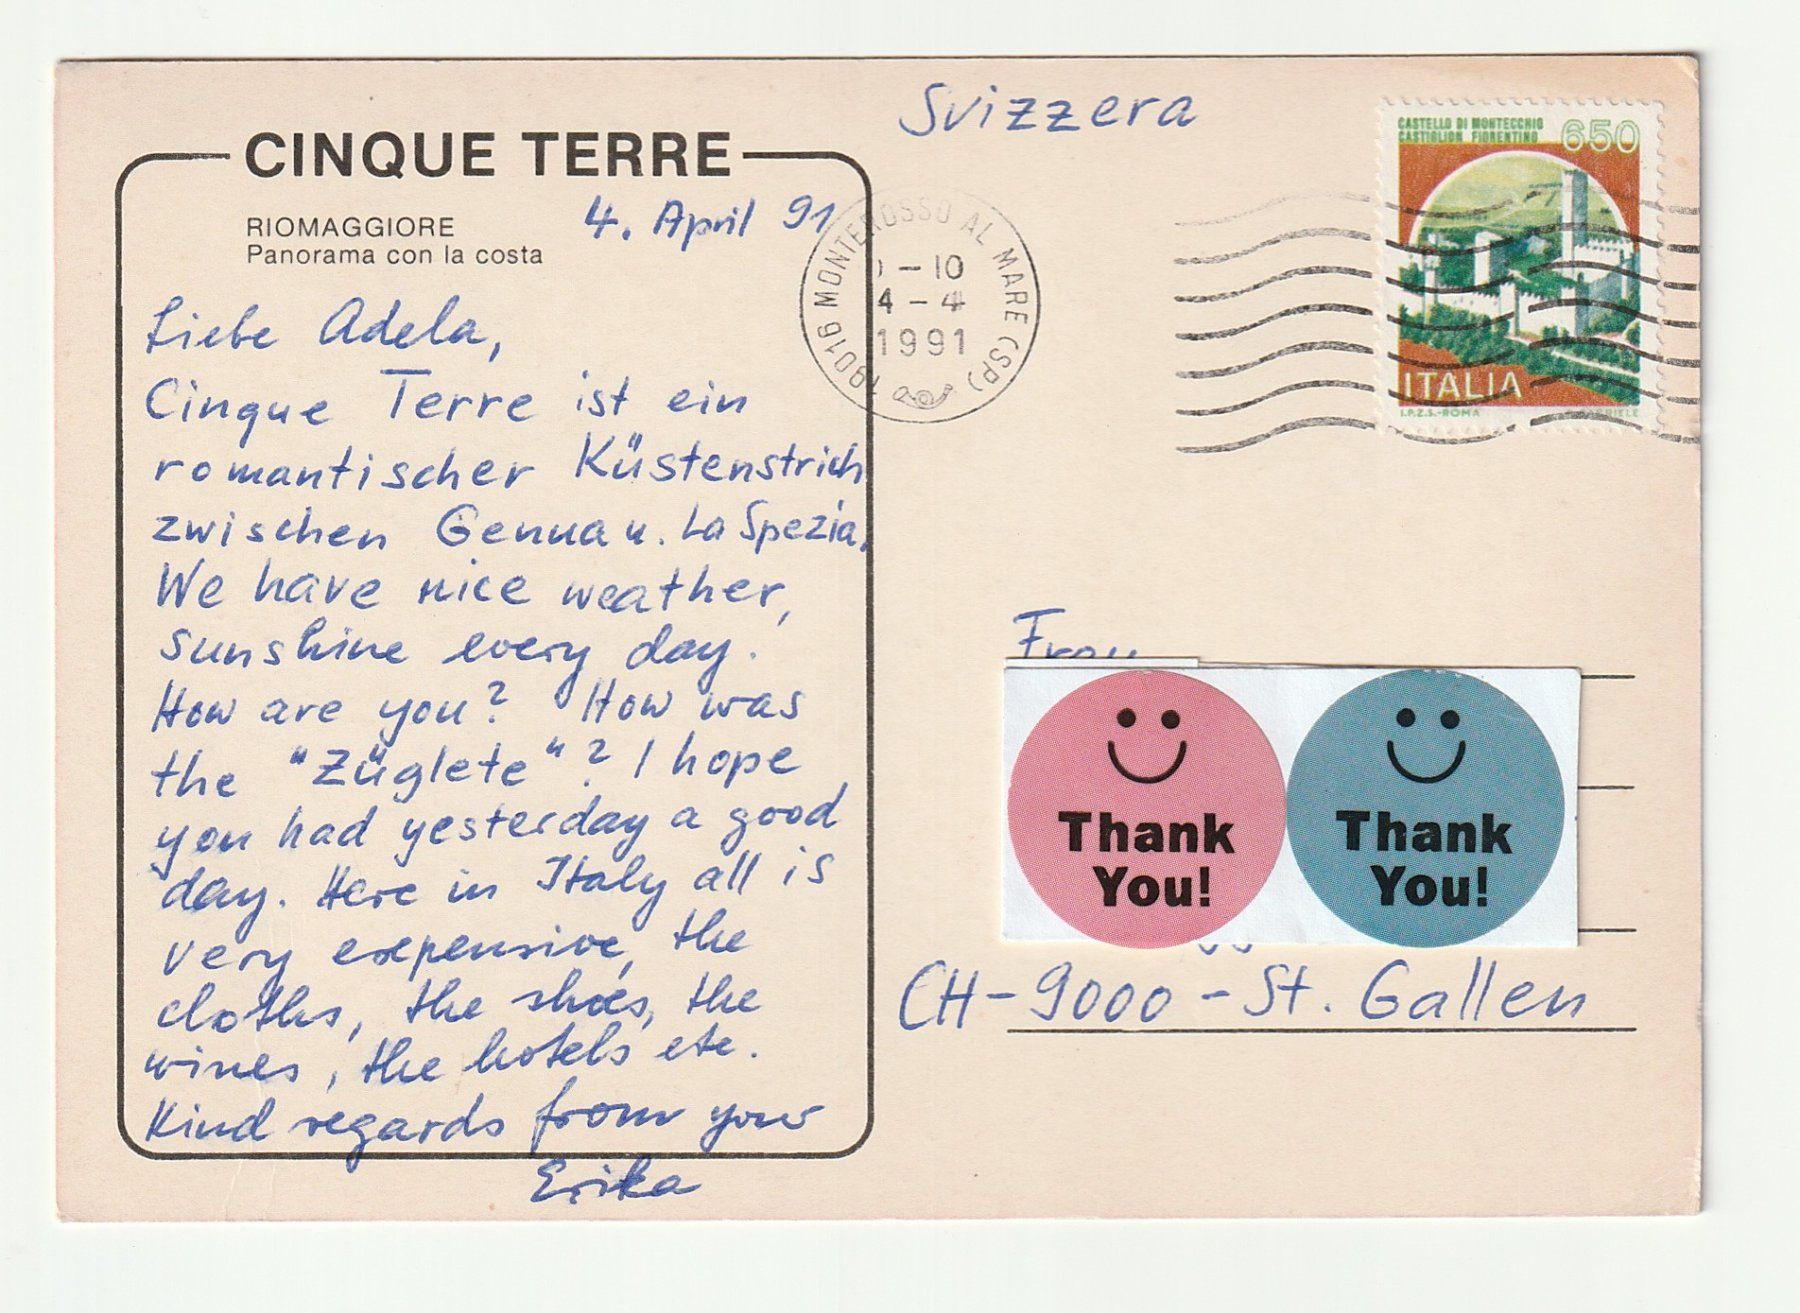 CINQUE TERRE
RIOMAGGIORE
Panorama con la costa
4. April 91
Liebe Adela,
Cinque Terre ist ein
romantischer Küstenstrich
zwischen Genua u. La Spezia.
We have nice weather,
sunshine every day.
How are you? How was
the "Züglete"? I hope
you had yesterday a good
day. Here in Italy all is
very expensive, the
cloths, the shoes, the
wines, the hotels etc.
Kind regards from your
Erika
Svizzera
19016 MONTEROSSO AL MARE (SP)
-10
4-4
1991
CASTELLO DI MONTECCHIO
CASTIGLION FIORENTINO
650
ITALIA
I.P.Z.S.-ROMA
Frau
Thank
You!
Thank
You!
CH-9000-St. Gallen